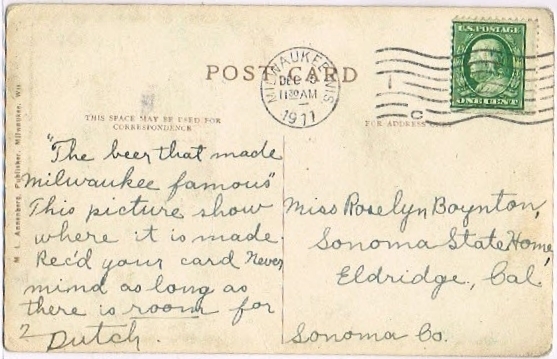 POST CARD
MILWAUKEE, WIS.
DEC 5
11 30 AM
1911
U.S. POSTAGE
ONE CENT
1
C
THIS SPACE MAY BE USED FOR
CORRESPONDENCE
FOR ADDRESS ONLY
M. L. Annenberg, Publisher, Milwaukee, Wis.
"The beer that made
Milwaukee famous"
This picture show
where it is made
Rec'd your card Never
mind as long as
there is room for
2
Dutch.
Miss Roselyn Boynton,
Sonoma State Home,
Eldridge, Cal.
Sonoma Co.